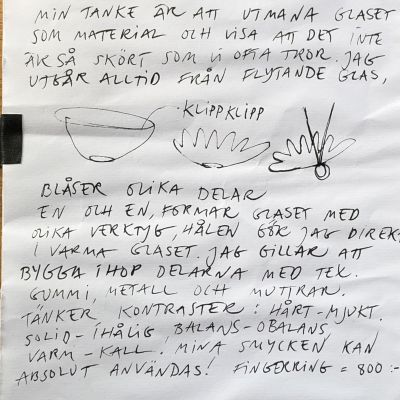 MIN TANKE ÄR ATT UTMANA GLASET
SOM MATERIAL OCH VISA ATT DET INTE
ÄR SÅ SKÖRT SOM VI OFTA TROR. JAG
UTGÅR ALLTID FRÅN FLYTANDE GLAS,
KLIPP KLIPP
BLÅSER OLIKA DELAR
EN OCH EN, FORMAR GLASET MED
OLIKA VERKTYG, HÅLEN GÖR JAG DIREKT
I VARMA GLASET. JAG GILLAR ATT
BYGGA IHOP DELARNA MED TEX.
GUMMI, METALL OCH MUTTRAR.
TÄNKER KONTRASTER: HÅRT-MJUKT.
SOLID-IHÅLIG, BALANS-OBALANS
VARM-KALL. MINA SMYCKEN KAN
ABSOLUT ANVÄNDAS! FINGERRING = 800:-